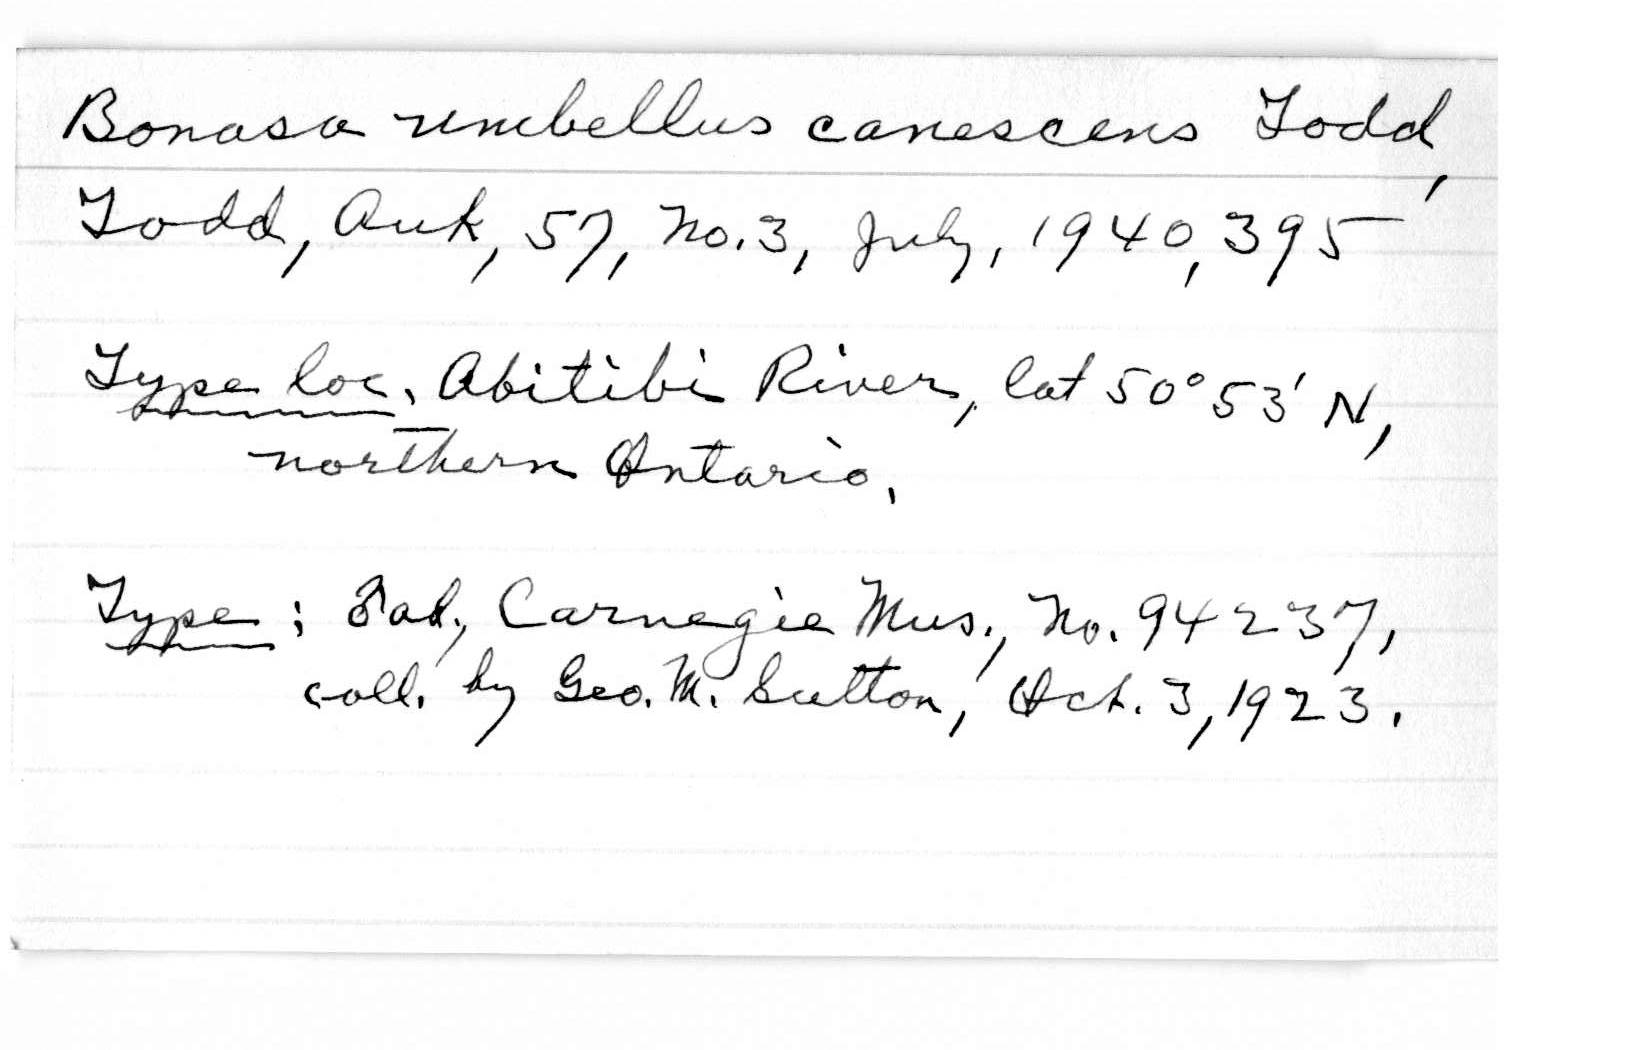 Bonasa umbellus canescens Todd,
Todd, Auk, 57, No. 3, July, 1940, 395
Type loc. Abitibi River, lat 50° 53' N,
northern Ontario.
Type: ♂ ad., Carnegie Mus., No. 94237,
coll. by Geo. M. Sutton, Oct. 3, 1923.